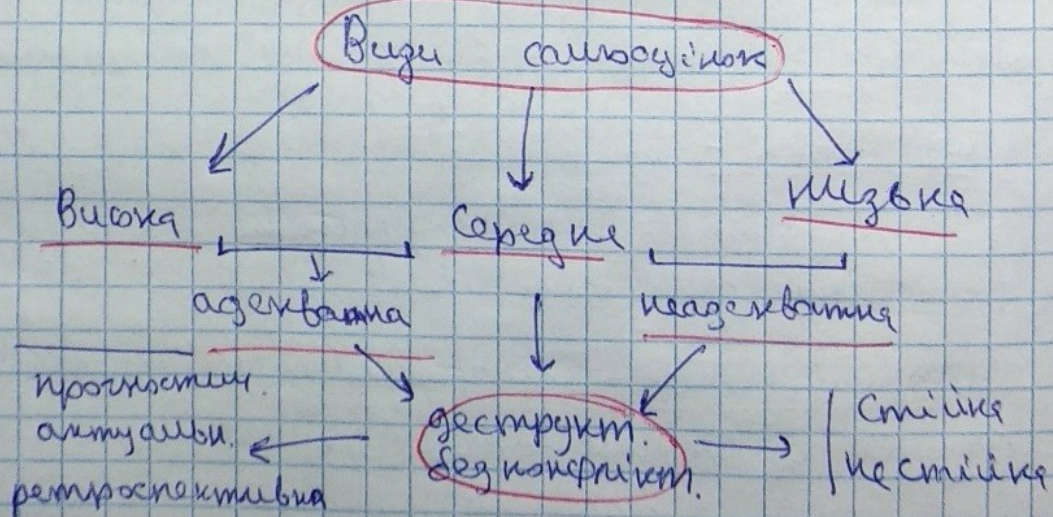 Види самооцінок
Висока
Середнє
Низька
адекватна
неадекватна
прогностич.
актуальн.
ретроспективна
деструкт.
безконфлікт.
Стійка
нестійка